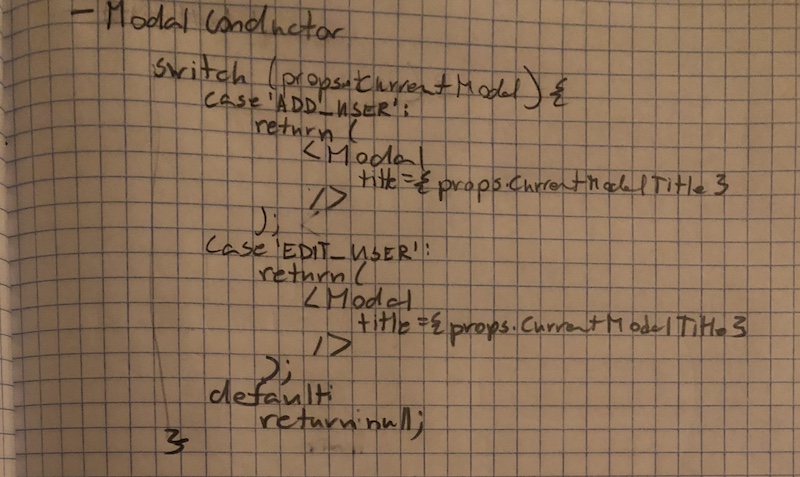 - Modal Conductor
switch (props.currentModal) {
case 'ADD_USER':
return (
<Modal
title={props.CurrentModalTitle}
/>
);
case 'EDIT_USER':
return (
<Modal
title={props.CurrentModalTitle}
/>
);
default:
return null;
}